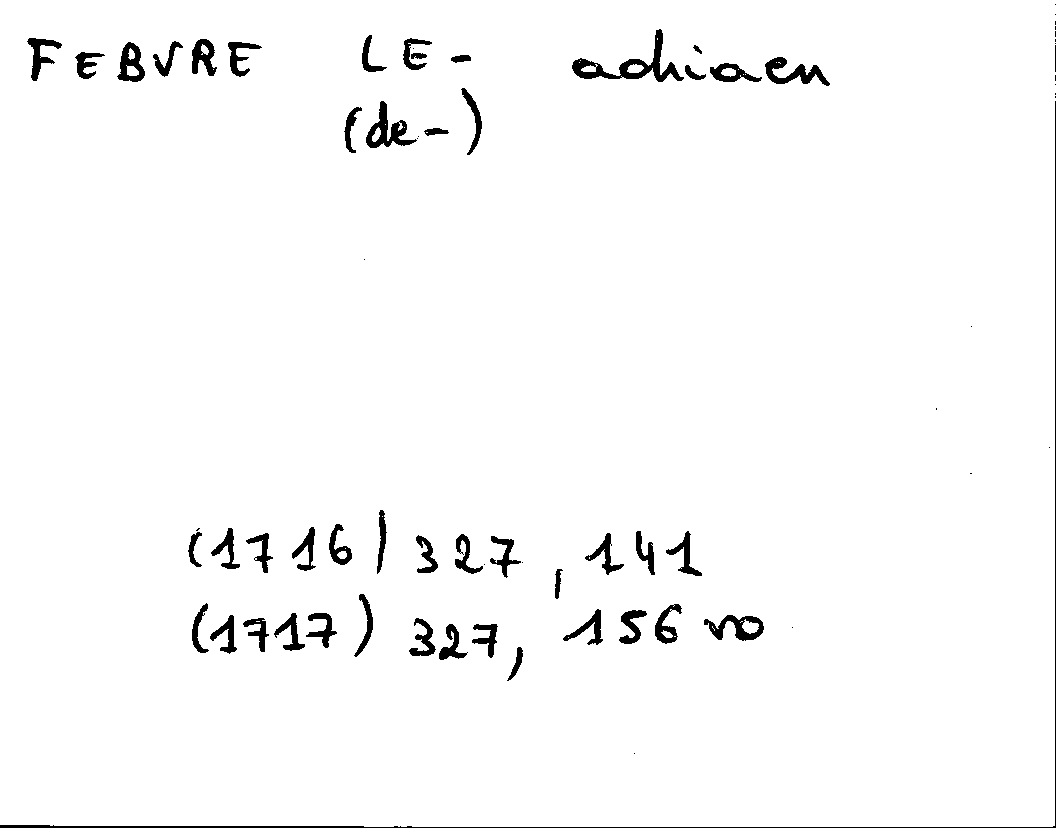 FEBVRE LE- adriaen
(de-)
(1716) 327, 141
(1717) 327, 156 vo